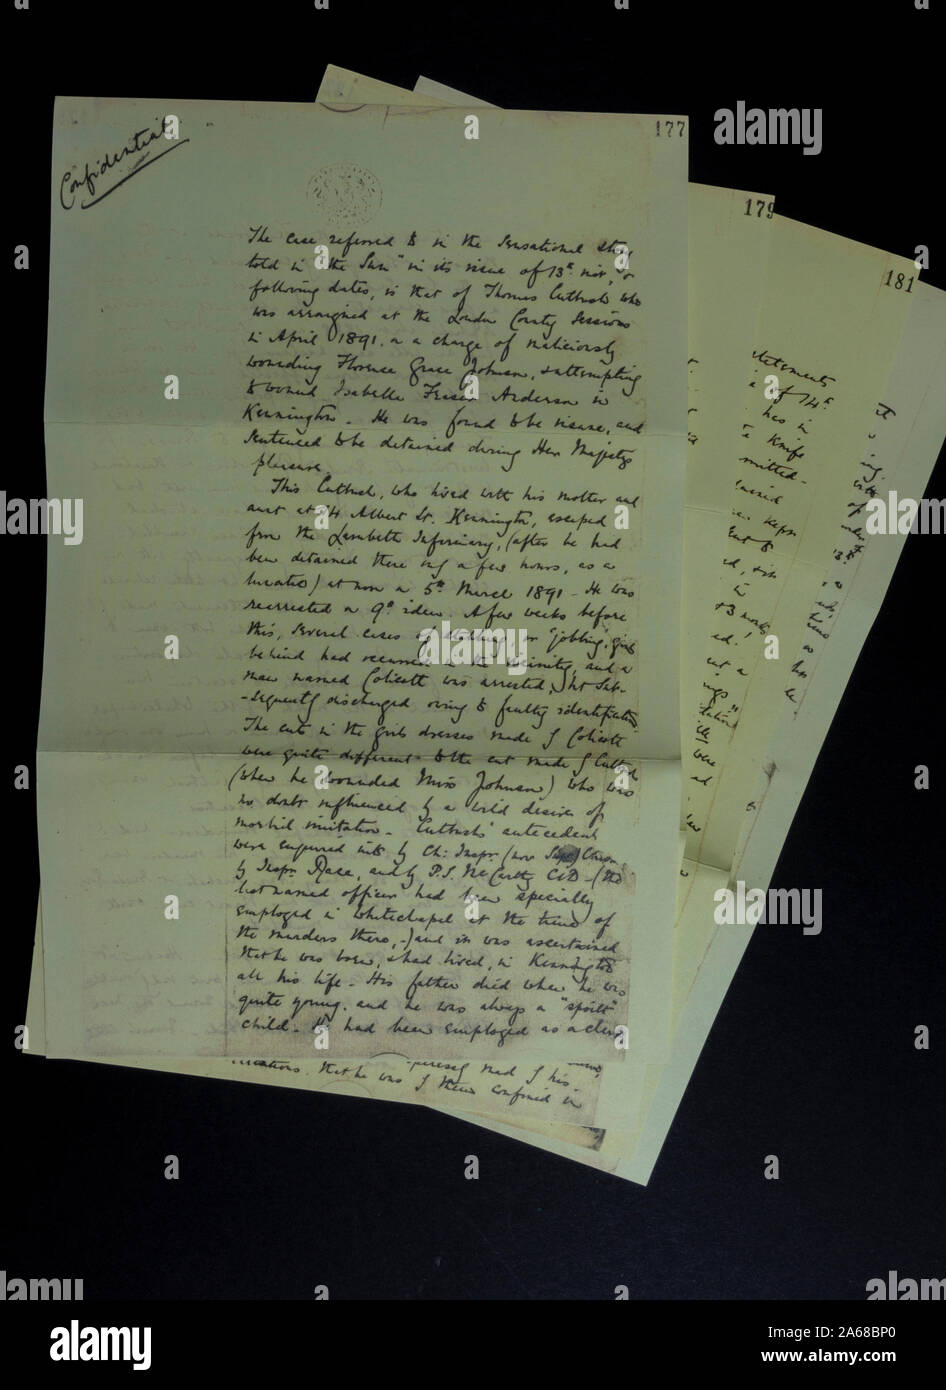 Confidential
177
The case referred to in the sensational story
told in "the Sun" in its issue of 13th inst, &
following dates, is that of Thomas Cutbush who
was arraigned at the London County Sessions
in April 1891, on a charge of maliciously
wounding Florence Grace Johnson, & attempting
to wound Isabelle Fraser Anderson in
Kennington. He was found to be insane, and
sentenced to be detained during Her Majesty's
pleasure.
This Cutbush, who lived with his mother and
aunt at 14 Albert St. Kennington, escaped
from the Lambeth Infirmary, (after he had
been detained there only a few hours, as a
lunatic) at noon on 5th March 1891 - He was
rearrested on 9th idem. A few weeks before
this, several cases of stabbing, or "jobbing", girls
behind had occurred in the vicinity, and a
man named Colicott was arrested, but sub-
-sequently discharged owing to faulty identification
The cuts in the girls dresses made by Colicott
were quite different to the cut made by Cutbush
(when he wounded Miss Johnson) who was
no doubt influenced by a wild desire of
morbid imitation. Cutbush's antecedents
were enquired into by Ch: Inspr. (now Supt.)
by Inspr. Race, and by P.S. McCarthy CID - (the
last named officer had been specially
employed in Whitechapel at the time of
the murders there,-) and it was ascertained
that he was born, & had lived, in Kennington
all his life. His father died when he was
quite young, and he was always a "spoilt"
child. He had been employed as a clerk
that he was by them confined in
179
statements
of 14th
has in
Knife
kept
to
in
a
were
181
of
13th
as
be
alamy
Image ID: 2A68BP0
www.alamy.com